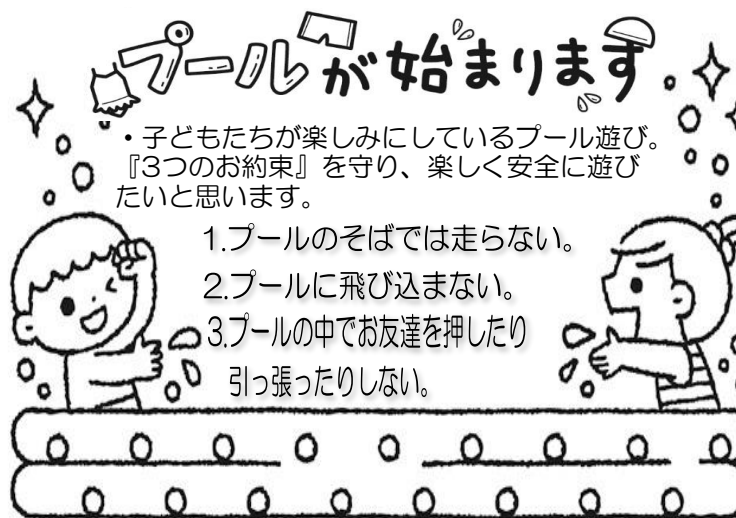 プールが始まります
・子どもたちが楽しみにしているプール遊び。
『3つのお約束』を守り、楽しく安全に遊び
たいと思います。
1.プールのそばでは走らない。
2.プールに飛び込まない。
3.プールの中でお友達を押したり
引っ張ったりしない。